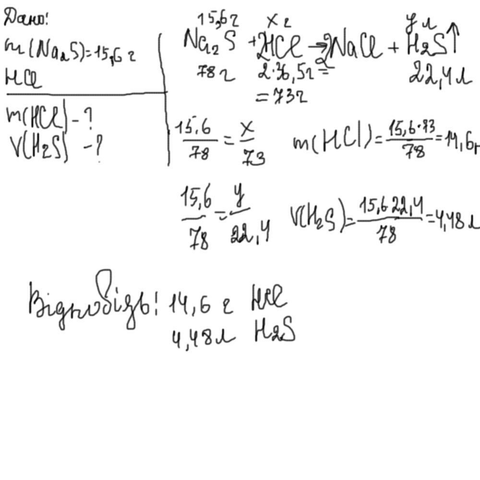 Дано:
m(Na₂S)=15,6 г
HCl
m(HCl) - ?
V(H₂S) - ?
15,6г x г y л
Na₂S + 2HCl → 2NaCl + H₂S↑
78г 2·36,5г = 22,4л
= 73г
15,6/78 = x/73 m(HCl) = 15,6·73/78 = 14,6г
15,6/78 = y/22,4 V(H₂S) = 15,6 22,4/78 = 4,48л
Відповідь: 14,6 г HCl
4,48л H₂S